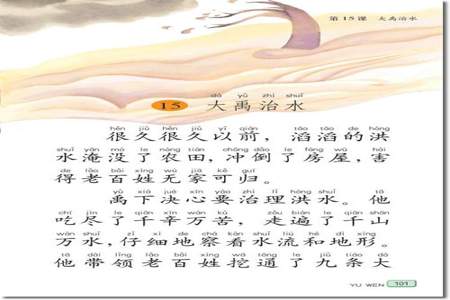 第15课 大禹治水
dà yǔ zhì shuǐ
15 大禹治水
hěn jiǔ hěn jiǔ yǐ qián tāo tāo de hóng
很久很久以前，滔滔的洪
shuǐ yān mò le nóng tián chōng dǎo le fáng wū hài
水淹没了农田，冲倒了房屋，害
de lǎo bǎi xìng wú jiā kě guī
得老百姓无家可归。
yǔ xià jué xīn yào zhì lǐ hóng shuǐ tā
禹下决心要治理洪水。他
chī jìn le qiān xīn wàn kǔ zǒu biàn le qiān shān
吃尽了千辛万苦，走遍了千山
wàn shuǐ zǐ xì de chá kàn shuǐ liú hé dì xíng
万水，仔细地察看水流和地形。
tā dài lǐng lǎo bǎi xìng wā tōng le jiǔ tiáo dà
他带领老百姓挖通了九条大
YU WEN 101